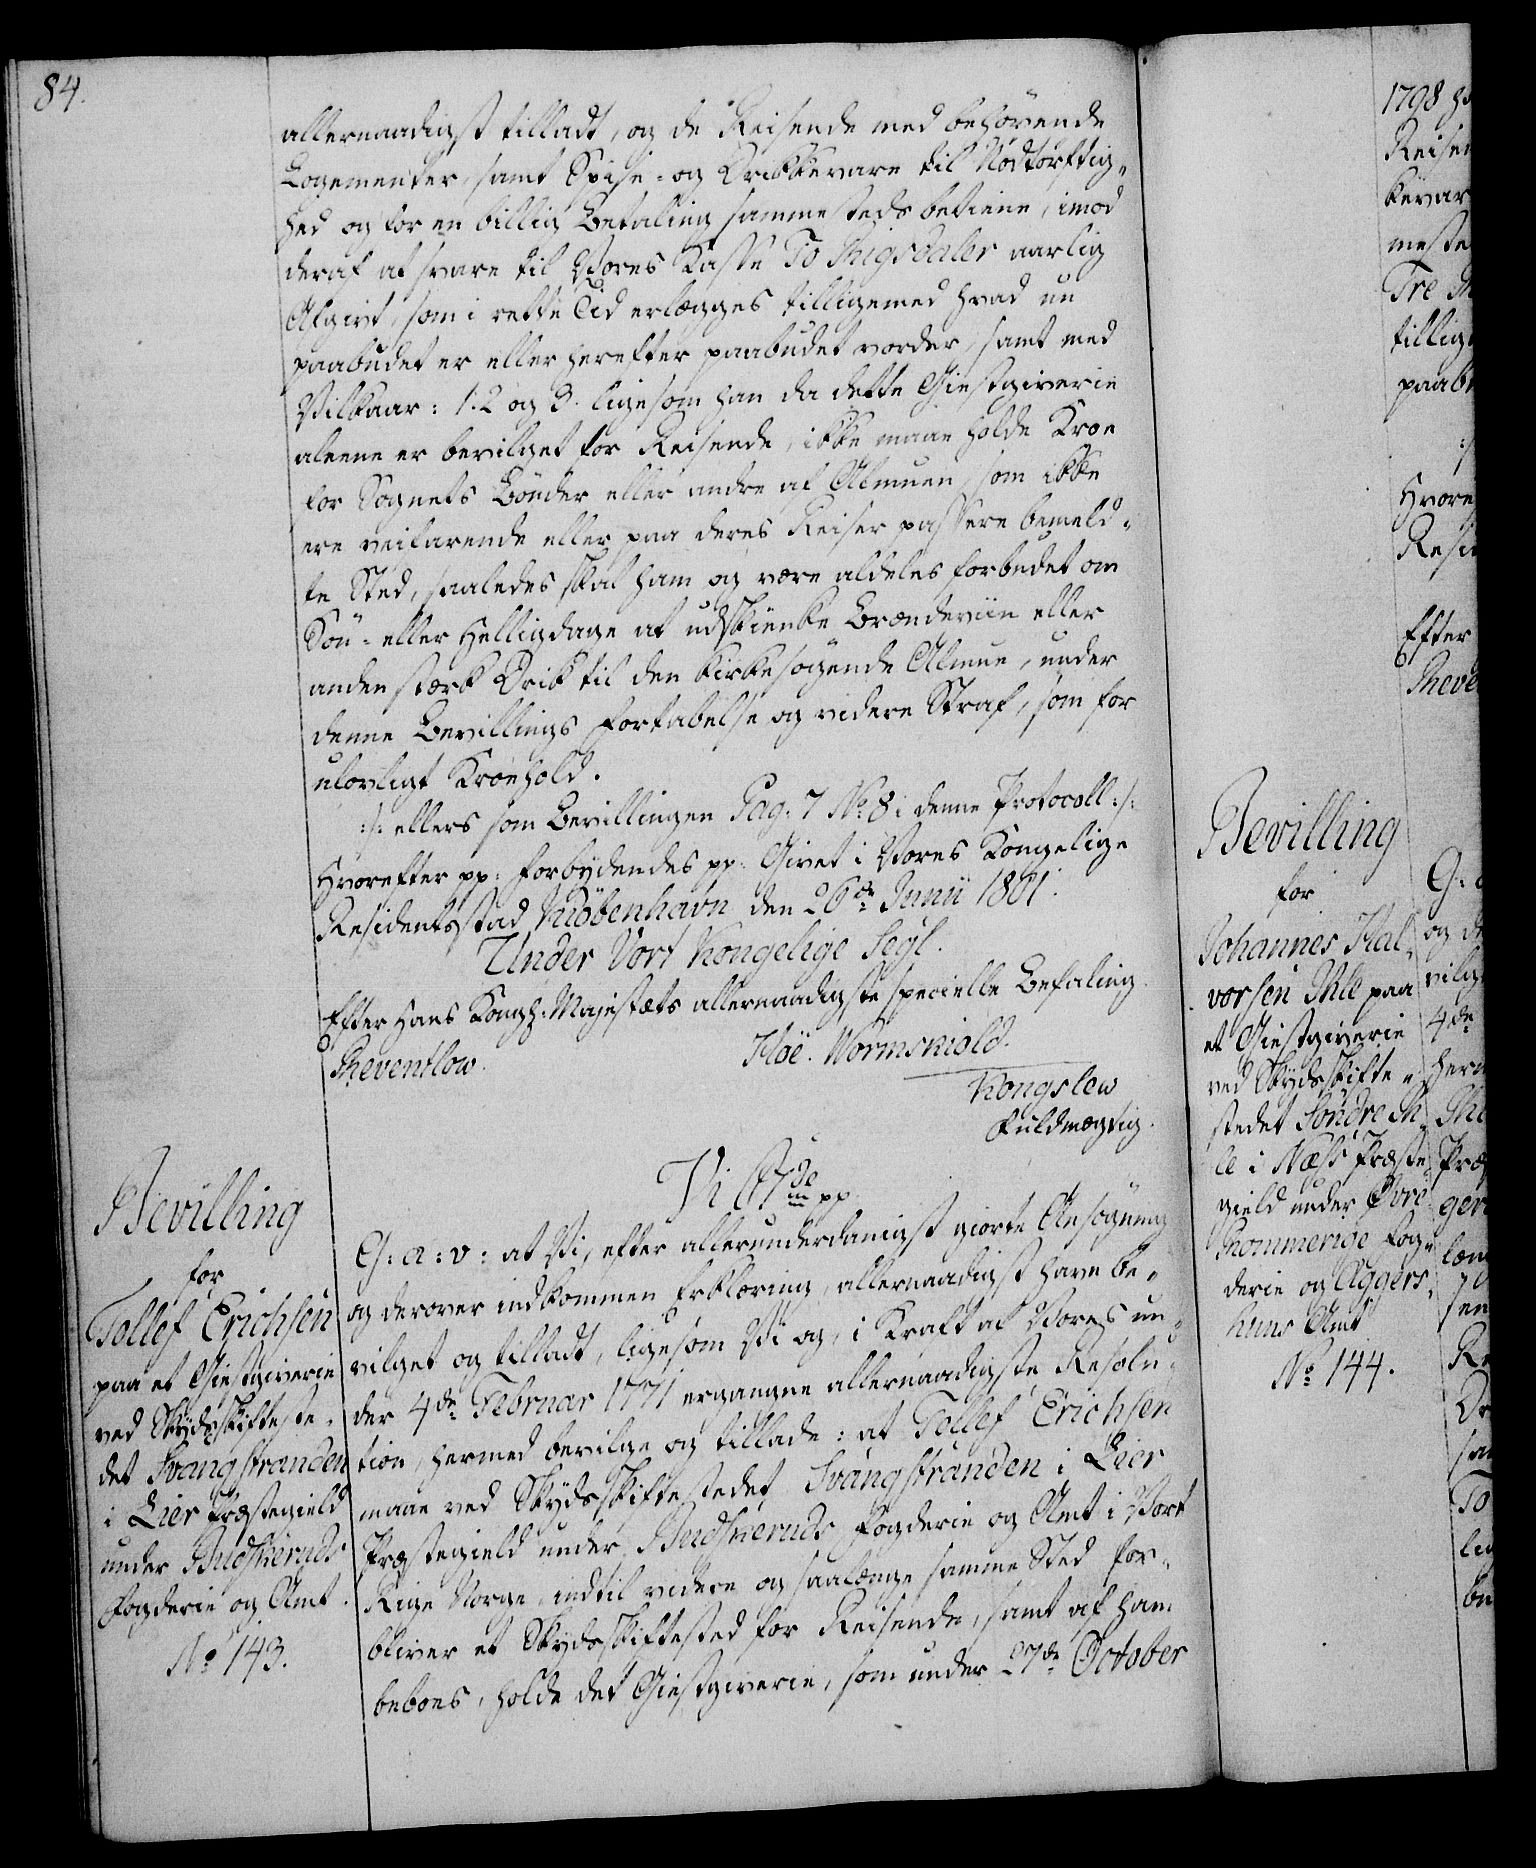 84.
allernaadigst tilladt, og de Reisende med behørende
Logementer, samt Spise- og Drikkevare til Nødtørftig-
hed og for en billig Betaling sammesteds betiene, imod
deraf at svare til Vores Kasse To Rigsdaler aarlig
Afgivt, som i rette Tid erlægges tilligemed hvad nu
paabudet er eller herefter paabudet vorder, samt med
Vilkaar: 1. 2 og 3. ligesom han da dette Giestgiverie
aleene er bevilget for Reisende, ikke maae holde Kroe
for Sognets Bönder eller andre af Almuen, som ikke
ere veifarende eller paa deres Reiser passere bemeld-
te Sted, saaledes skal ham og være aldeles forbudet om
Søn- eller Helligdage at udskienke Brændeviin eller
anden stærk Drik til den kirkesøgende Almue, under
denne Bevillings Fortabelse og videre Straf, som for
ulovligt Kroehold.
:/: ellers som Bevillingen Pag. 7 No 8 i denne Protocoll :/:
Hvorefter pp: Forbydendes pp. Givet i Vores Kongelige
Residentsstad Kiøbenhavn den 26de Junii 1801.
Under Vort Kongelige Segl.
Efter Hans Kongl: Majestæts allernaadigste specielle Befaling.
Reventlow. Höe. Wormskiold.
Kongslew
Fuldmægtig.
Bevilling
for
Tollef Erichsen
paa et Giestgiverie
ved Skydsskifteste-
det Svangstranden
i Lier Præstegield
under Budskeruds
Fogderie og Amt.
No 143.
Vi C 7de pp
G: a: v: at Vi, efter allerunderdanigst giorte Ansøgning
og derover indkommen Erklæring, allernaadigst have be-
vilget og tilladt, ligesom Vi og, i Kraft af Vores un-
der 4de Februar 1771 ergangne allernaadigste Resolu-
tion, hermed bevilge og tillade: at Tollef Erichsen
maae ved Skydsskiftestedet Svangstranden i Lier
Præstegield under Budskeruds Fogderie og Amt i Vort
Rige Norge, indtil videre og saalænge samme Sted for-
bliver et Skydsskiftested for Reisende, samt af ham
beboes, holde det Giestgiverie, som under 27de October
Bevilling
for
Johannes Hal-
vorsen Ihle paa
et Giestgiverie
ved Skydsskifte-
stedet Söndre Ih-
le i Næss Præste-
gield under Øvre
Rommerige Fog-
derie og Aggers-
huus Amt
No 144.
1798
Reisen
kevar
meste
Tre
tillig
paab
Hvore
Resid
Efter
Reve
G:
og de
vilg
4de
herm
Ihle
Præ
geri
læn
sen
Re
Dr
sa
To
lig
be